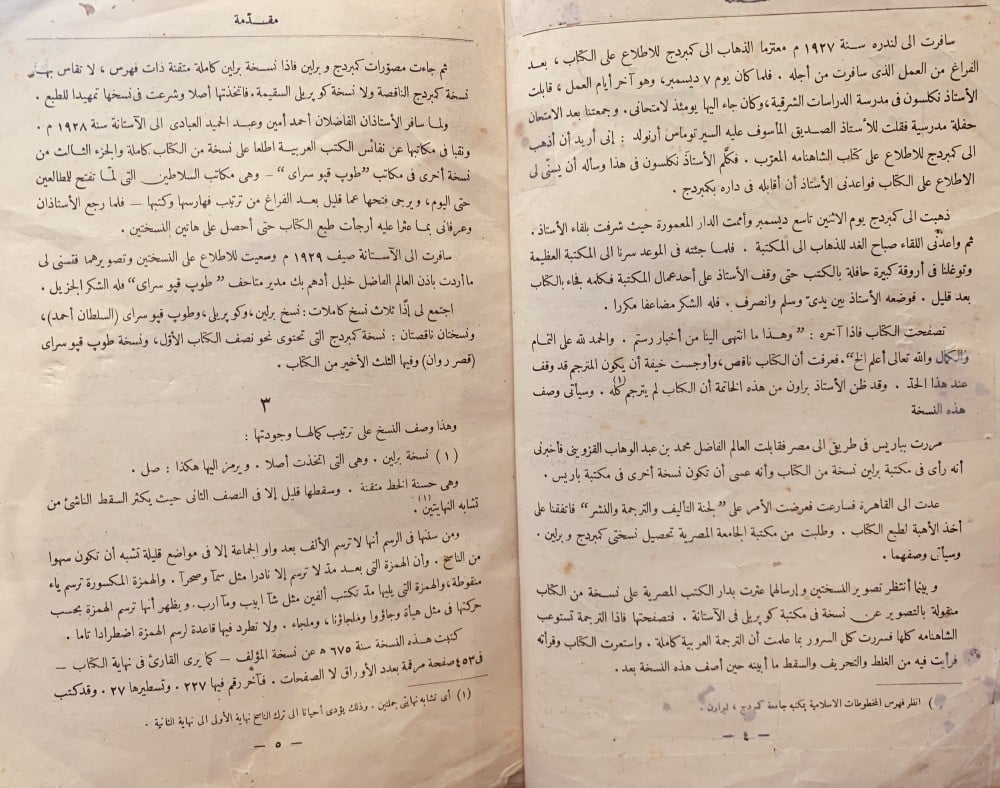 سافرت الى لندره سنة ١٩٢٧ م معتزما الذهاب الى كمبردج للاطلاع على الكتاب ، بعد
الفراغ من العمل الذى سافرت من أجله . فلما كان يوم ٧ ديسمبر، وهو آخر أيام العمل ، قابلت
الأستاذ نكلسون فى مدرسة الدراسات الشرقية، وكان جاء اليها يومئذ لامتحانى . وجمعتنا بعد الامتحان
حفلة مدرسية فقلت للأستاذ الصديق المأسوف عليه السير توماس أرنولد : إنى أريد أن أذهب
الى كمبردج للاطلاع على كتاب الشاهنامه المعرّب . فكلّم الأستاذ نكلسون فى هذا وسأله أن يسنّى لى
الاطلاع على الكتاب فواعدنى الأستاذ أن أقابله فى داره بكمبردج .
ذهبت الى كمبردج يوم الاثنين تاسع ديسمبر وأممت الدار المعمورة حيث شرفت بلقاء الأستاذ .
ثم واعدنى اللقاء صباح الغد للذهاب الى المكتبة . فلما جئته فى الموعد سرنا الى المكتبة العظيمة
وتوغلنا فى أروقة كبيرة حافلة بالكتب حتى وقف الأستاذ على أحد عمال المكتبة فكلمه فجاء بالكتاب
بعد قليل . فوضعه الأستاذ بين يدىّ وسلم وانصرف . فله الشكر مضاعفا مكررا .
تصفحت الكتاب فاذا آخره : ”وهذا ما انتهى الينا من أخبار رستم . والحمد لله على التمام
والكمال والله تعالى أعلم الخ“. فعرفت أن الكتاب ناقص، وأوجست خيفة أن يكون المترجم قد وقف
عند هذا الحدّ . وقد ظن الأستاذ براون من هذه الخاتمة أن الكتاب لم يترجم كلّه (١) . وسيأتى وصف
هذه النسخة
مررت بباريس فى طريقى الى مصر فقابلت العالم الفاضل محمد بن عبد الوهاب القزوينى فأخبرنى
أنه رأى فى مكتبة برلين نسخة من الكتاب وأنه عسى أن تكون نسخة أخرى فى مكتبة باريس .
عدت الى القاهرة فسارعت فعرضت الأمر على ”لجنة التأليف والترجمة والنشر“ فاتفقنا على
أخذ الأهبة لطبع الكتاب . وطلبت من مكتبة الجامعة المصرية تحصيل نسختى كمبردج و برلين .
وسيأتى وصفهما .
و بينما أنتظر تصوير النسختين و إرسالها عثرت بدار الكتب المصرية على نسخة من الكتاب
منقولة بالتصوير عن نسخة فى مكتبة كو پريلى فى الآستانة . فتصفحتها فاذا الترجمة تستوعب
الشاهنامه كلها فسررت كل السرور بما علمت أن الترجمة العربية كاملة . واستعرت الكتاب وقرأته
فرأيت فيه من الغلط والتحريف والسقط ما أبينه حين أصف هذه النسخة بعد .
) انظر فهرس المخطوطات الاسلامية بمكتبه جامعة كمبردج ، لبراون .
— ٤ —
مقــدّمة
ثم جاءت مصوّرات كمبردج و برلين فاذا نسخة برلين كاملة متقنة ذات فهرس ، لا تقاس بها
نسخة كمبردج الناقصة ولا نسخة كو پريلى السقيمة. فاتخذتها أصلا وشرعت فى نسخها تمهيدا للطبع .
ولما سافر الأستاذان الفاضلان أحمد أمين وعبد الحميد العبادى الى الآستانة سنة ١٩٢٨ م .
ونقبا فى مكاتبها عن نفائس الكتب العربية اطلعا على نسخة من الكتاب كاملة والجزء الثالث من
نسخة أخرى فى مكاتب ”طوپ قپو سراى “ — وهى مكاتب السلاطين التى لمّا تفتح للمطالعين
حتى اليوم، ويرجى فتحها عما قليل بعد الفراغ من ترتيب فهارسها وكتبها — فلما رجع الأستاذان
وعرفانى بما عثرا عليه أرجأت طبع الكتاب حتى أحصل على هاتين النسختين .
سافرت الى الآستانة صيف ١٩٢٩ م وسعيت للاطلاع على النسختين وتصويرهما فتسنى لى
ما أردت باذن العالم الفاضل خليل أدهم بك مدير متاحف ” طوپ قپو سراى“ فله الشكر الجزيل .
اجتمع لى إذًا ثلاث نسخ كاملات : نسخ برلين، وكو پريلى، وطوپ قپو سراى (السلطان أحمد)،
ونسختان ناقصتان : نسخة كمبردج التى تحتوى نحو نصف الكتاب الأوّل، ونسخة طوپ قپو سراى
(قصر روان) وفيها الثلث الأخير من الكتاب .
٣
وهذا وصف النسخ على ترتيب كمالها وجودتها :
(١) نسخة برلين . وهى التى اتخذت أصلا . ويرمز اليها هكذا : صل .
وهى حسنة الخط متقنة . وسقطها قليل إلا فى النصف الثانى حيث يكثر السقط الناشئ من
تشابه النهايتين (١) .
ومن سننها فى الرسم أنها لا ترسم الألف بعد واو الجماعة إلا فى مواضع قليلة تشبه أن تكون سهوا
من الناسخ . وأن الهمزة التى بعد مدّ لا ترسم إلا نادرا مثل سمآ وصحرآ . والهمزة المكسورة ترسم ياء
منقوطة، والهمزة التى يليها مدّ تكتب ألفين مثل شآ ابيب ومآ ارب . ويظهر أنها ترسم الهمزة بحسب
حركتها فى مثل هيأة وجاؤوا وملجاؤنا، وملجاء . ولا تطرد فيها قاعدة لرسم الهمزة اضطرادا تاما .
كتبت هذه النسخة سنة ٦٧٥ ه عن نسخة المؤلف — كما يرى القارئ فى نهاية الكتاب —
فى ٤٥٣ صفحة مرقمة بعدد الأوراق لا الصفحات . فآخر رقم فيها ٢٢٧ . وتسطيرها ٢٧ . وقد كتب
(١) أى تشابه نهايتى جملتين . وذلك يؤدى أحيانا الى ترك الناسخ نهاية الأولى الى نهاية الثانية .
— ٥ —